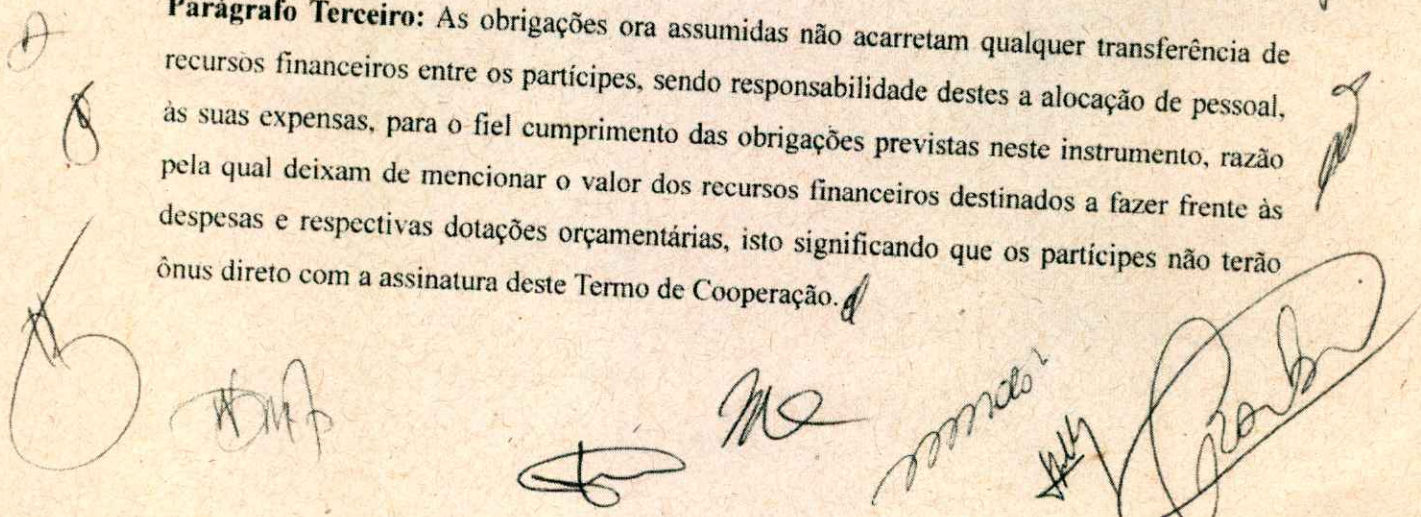 Parágrafo Terceiro: As obrigações ora assumidas não acarretam qualquer transferência de
recursos financeiros entre os partícipes, sendo responsabilidade destes a alocação de pessoal,
às suas expensas, para o fiel cumprimento das obrigações previstas neste instrumento, razão
pela qual deixam de mencionar o valor dos recursos financeiros destinados a fazer frente às
despesas e respectivas dotações orçamentárias, isto significando que os partícipes não terão
ônus direto com a assinatura deste Termo de Cooperação.